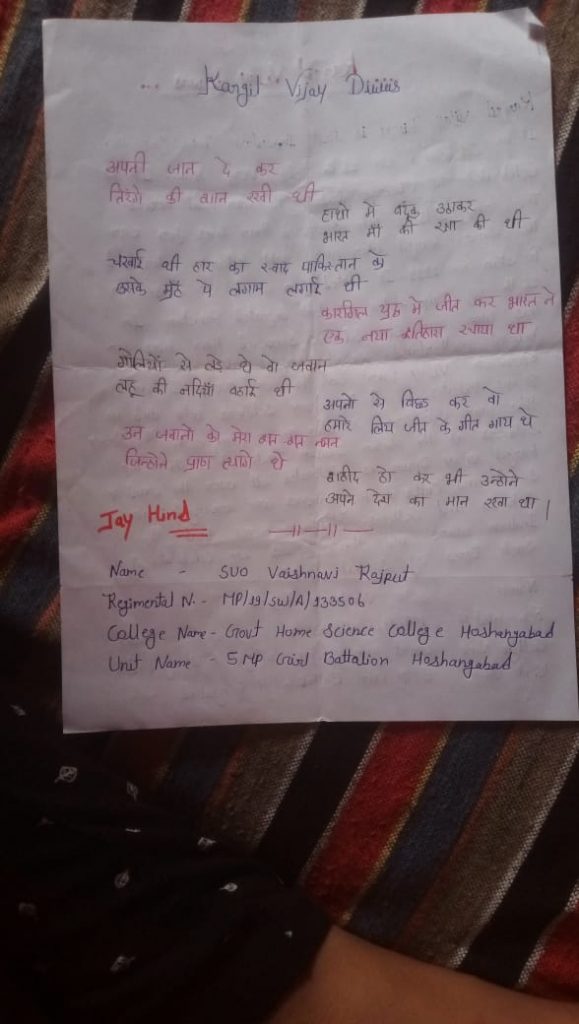 Kargil Vijay Diwas
अपनी जान दे कर
तिरंगे की शान रखी थी
हाथो मे बंदूक उठाकर
भारत माँ की रक्षा की थी
चखाई थी हार का स्वाद पाकिस्तान को
उसके मुँह पे लगाम लगाई थी
कारगिल युद्ध मे जीत कर भारत ने
एक नया इतिहास रचाया था
गोलियों से लड़े थे वो जवान
लहू की नदियाँ बहाई थी
अपनो से बिछड़ कर वो
हमारे लिय जीत के गीत गाय थे
उन जवानो को मेरा शत शत नमन
जिन्होने प्राण त्यागे थे
शहीद हो कर भी उन्होने
अपने देश का मान रखा था।
Jay Hind
Name - SUO Vaishnavi Rajput
Regimental N. - MP/19/SW/A/133506
College Name - Govt Home Science College Hoshangabad
Unit Name - 5 MP Girl Battalion Hoshangabad